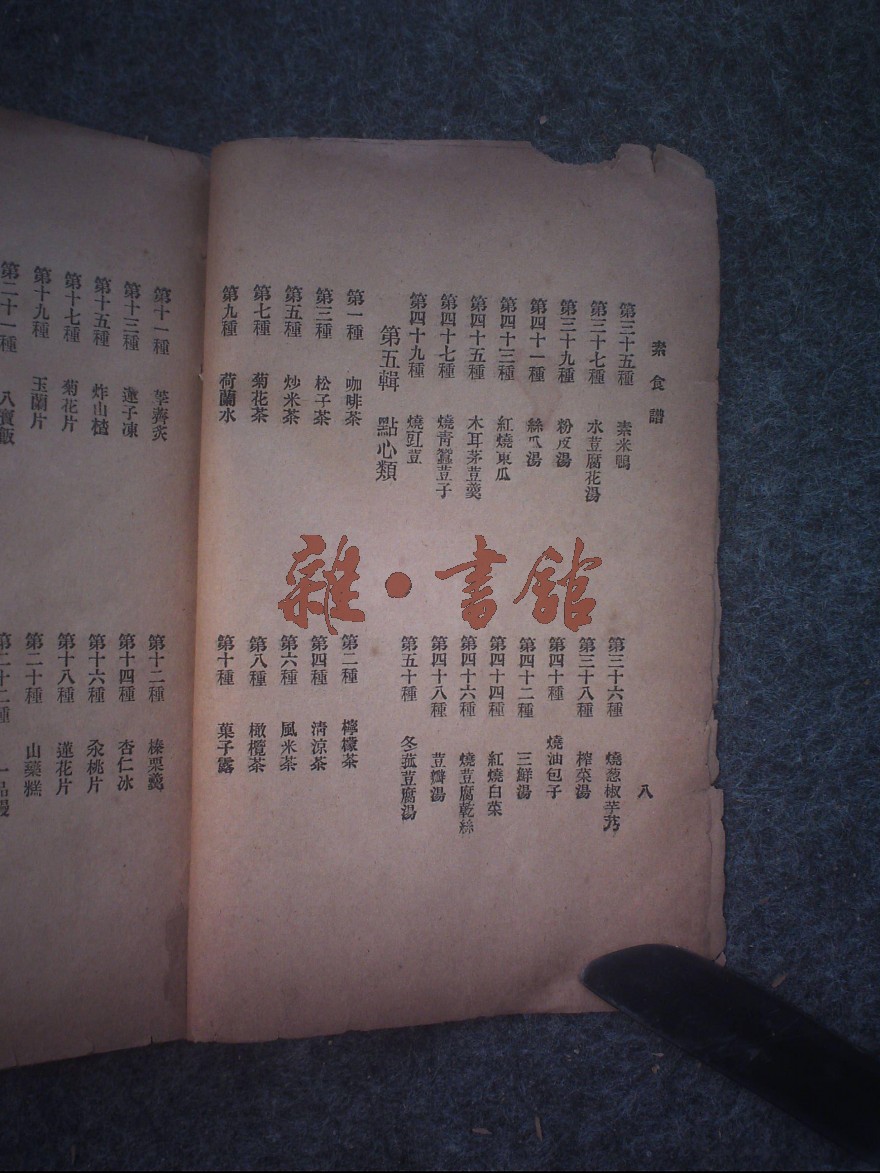 素食譜
八
第三十五種 素米鴨
第三十六種 燒葱椒芋艿
第三十七種 水荳腐花湯
第三十八種 榨菜湯
第三十九種 粉皮湯
第四十種 燒油包子
第四十一種 絲瓜湯
第四十二種 三鮮湯
第四十三種 紅燒東瓜
第四十四種 紅燒白菜
第四十五種 木耳茅荳羹
第四十六種 燒荳腐乾絲
第四十七種 燒青蠶荳子
第四十八種 荳瓣湯
第四十九種 燒豇荳
第五十種 冬菰荳腐湯
第五輯 點心類
第一種 咖啡茶
第二種 檸檬茶
第三種 松子茶
第四種 清涼茶
第五種 炒米茶
第六種 風米茶
第七種 菊花茶
第八種 橄欖茶
第九種 荷蘭水
第十種 菓子露
第十一種 荸薺炙
第十二種 榛栗羹
第十三種 蓮子凍
第十四種 杏仁冰
第十五種 炸山楂
第十六種 汆桃片
第十七種 菊花片
第十八種 蓮花片
第十九種 玉蘭片
第二十種 山藥糕
第二十一種 八寶飯
第二十二種 一品
雜·書館